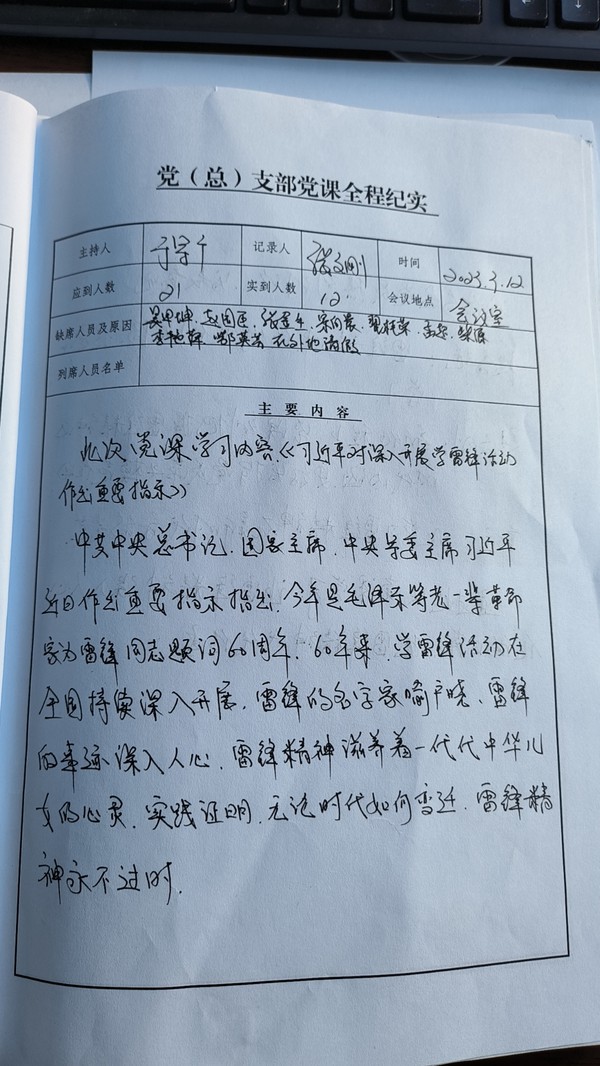 党（总）支部党课全程纪实
主持人 记录人 时间 2023.3.12
应到人数 21 实到人数 12 会议地点 会议室
缺席人员及原因
在外地请假
列席人员名单
主要内容
此次党课学习内容《习近平对深入开展学雷锋活动
作出重要指示》
中共中央总书记、国家主席、中央军委主席习近平
近日作出重要指示指出，今年是毛泽东等老一辈革命
家为雷锋同志题词60周年，60年来，学雷锋活动在
全国持续深入开展，雷锋的名字家喻户晓，雷锋
的事迹深入人心，雷锋精神滋养着一代代中华儿
女的心灵，实践证明，无论时代如何变迁，雷锋精
神永不过时.